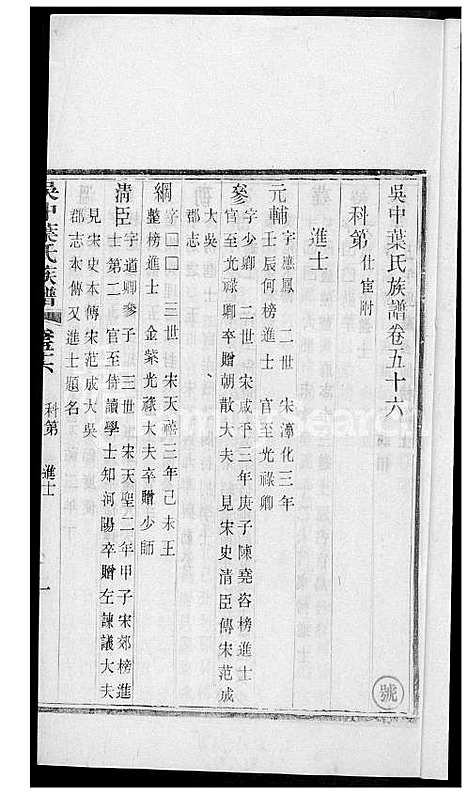 吳中葉氏族譜卷五十六
科第 仕宦附
進士
元輔 字應鳳 二世 宋淳化三年
壬辰何榜進士 官至光祿卿
參 字少卿 二世 宋咸平三年庚子陳堯咨榜進士
官至光祿卿卒贈朝散大夫 見宋史清臣傳宋范成
大吳
郡志
綱 字囗囗 三世 宋天禧三年己未王
整榜進士 金紫光祿大夫卒贈少師
清臣 字道卿參子 三世 宋天聖二年甲子宋郊榜進
士第二 官至侍讀學士知河陽卒贈左諫議大夫
見宋史本傳宋范成大吳
郡志本傳又進士題名
吳中葉氏族譜 卷五六 科第 進士 一
號